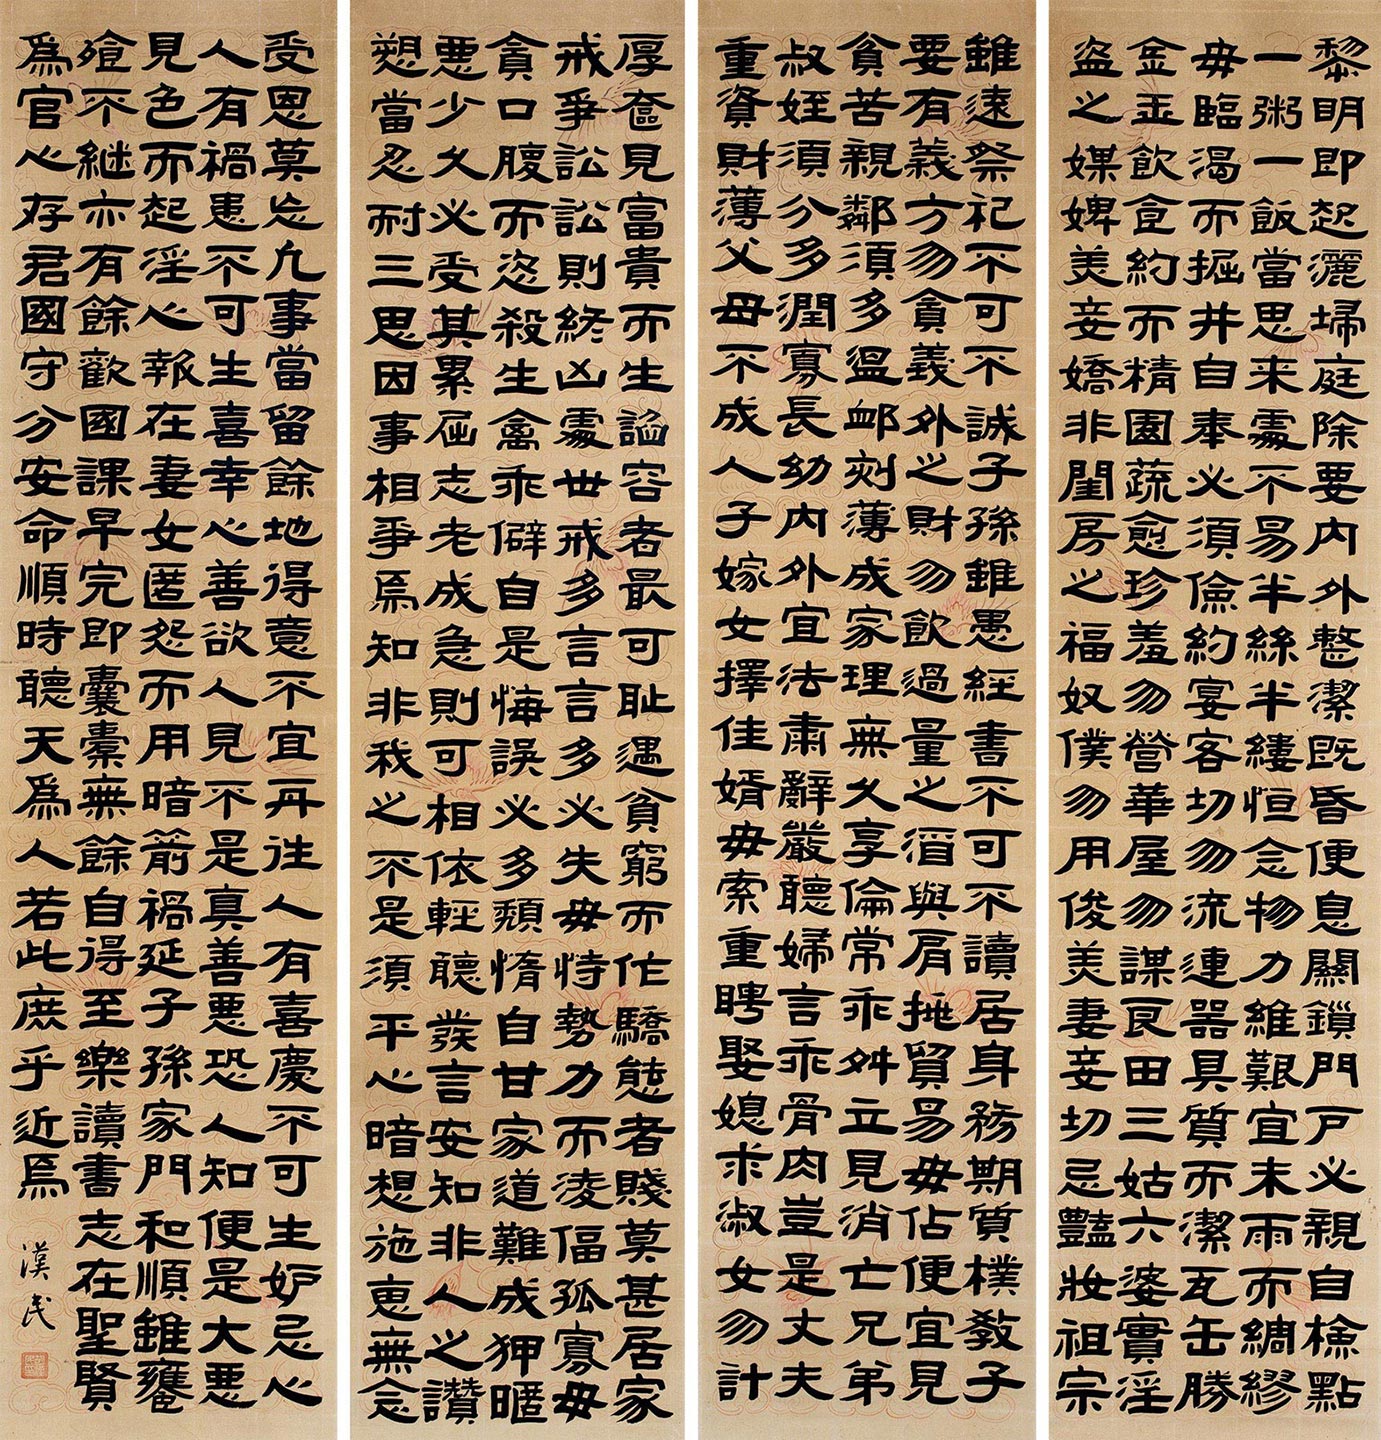 黎明即起灑埽庭除要内外整潔既昏便息關鎖門戶必親自檢點
一粥一飯當思来處不易半絲半縷恒念物力維艱宜未雨而綢繆
毋臨渴而掘井自奉必須儉約宴客切勿流連器具質而潔瓦缶勝
金玉飲食約而精園蔬愈珍羞勿營華屋勿謀良田三姑六婆實淫
盜之媒婢美妾嬌非閨房之福奴僕勿用俊美妻妾切忌豔妝祖宗
雖遠祭祀不可不誠子孫雖愚經書不可不讀居身務期質樸敎子
要有義方勿貪義外之財勿飲過量之酒與肩挑貿易毋佔便宜見
貧苦親鄰須多溫卹刻薄成家理無久享倫常乖舛立見消亡兄弟
叔姪須分多潤寡長幼内外宜法肅辭嚴聽婦言乖骨肉豈是丈夫
重資財薄父母不成人子嫁女擇佳婿毋索重聘娶媳求淑女勿計
厚奩見富貴而生諂容者最可恥遇貧窮而作驕態者賤莫甚居家
戒爭訟訟則終凶處世戒多言言多必失毋恃勢力而淩偪孤寡毋
貪口腹而恣殺生禽乖僻自是悔誤必多頹惰自甘家道難成狎暱
惡少久必受其累屈志老成急則可相依輕聽發言安知非人之讚
愬當忍耐三思因事相爭焉知非我之不是須平心暗想施惠無念
受恩莫忘凡事當留餘地得意不宜再往人有喜慶不可生妒忌心
人有禍患不可生喜幸心善欲人見不是真善惡恐人知便是大惡
見色而起淫心報在妻女匿怨而用暗箭禍延子孫家門和順雖饔
飧不繼亦有餘歡國課早完即囊橐無餘自得至樂讀書志在聖賢
爲官心存君國守分安命順時聽天爲人若此庶乎近焉
漢民